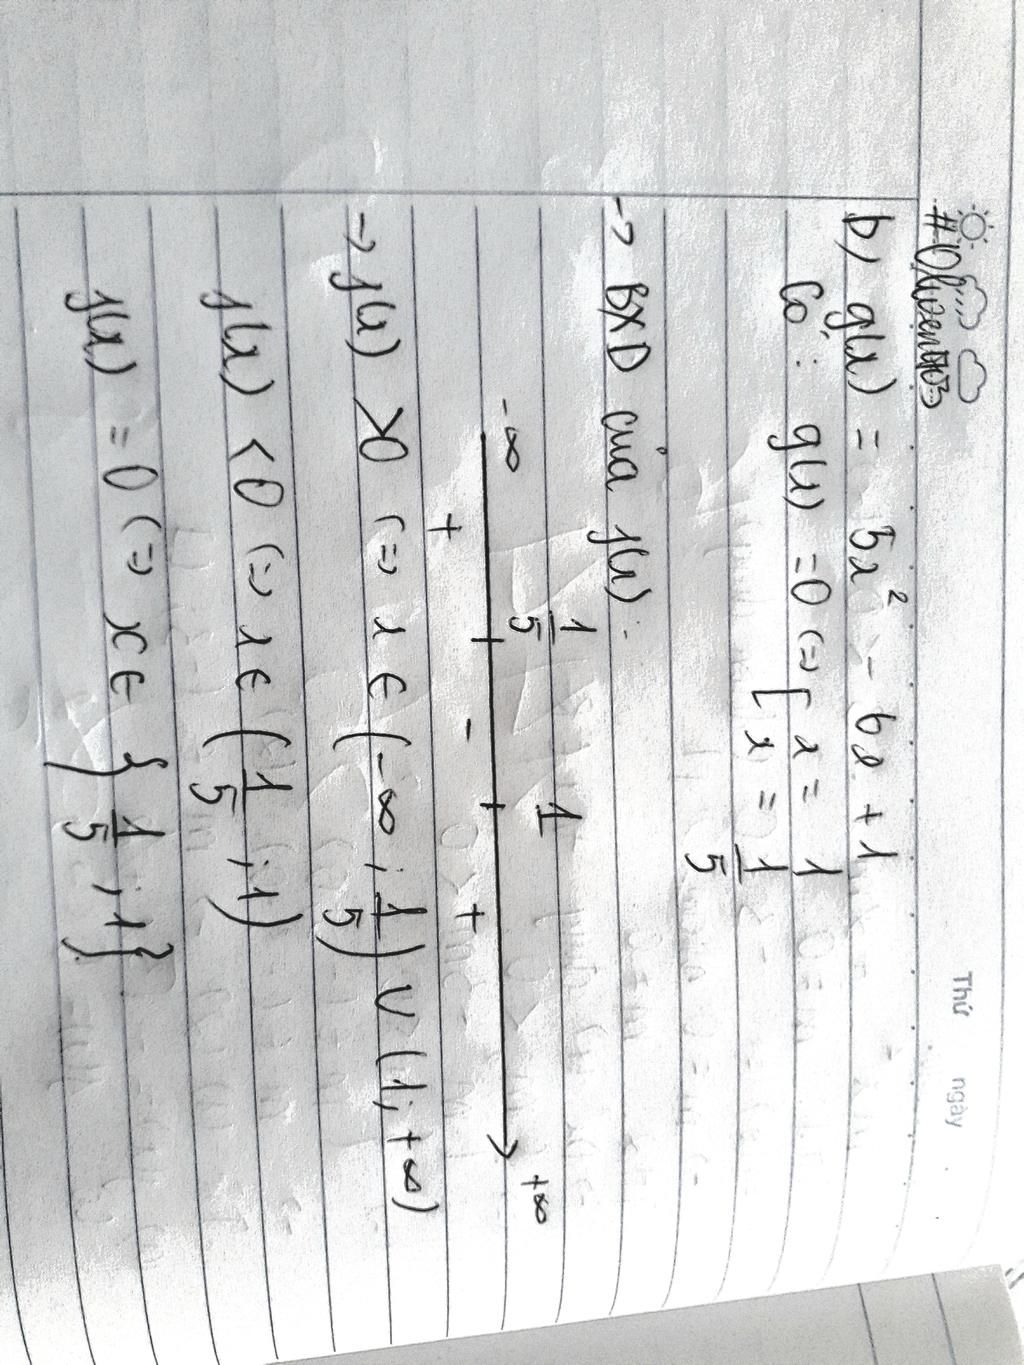 Thứ ngày
b) g(x) = 5x² - 6x + 1
Có : g(x) = 0 (=> [ x = 1
[ x = 1/5
-> BXD của g(x) :
-∞ 1/5 1 +∞
+ - +
-> g(x) >0 (=> x ∈ (-∞ ; 1/5) ∪ (1; +∞)
g(x) <0 (=> x ∈ (1/5 ; 1)
g(x) =0 (=> x ∈ {1/5 ; 1}